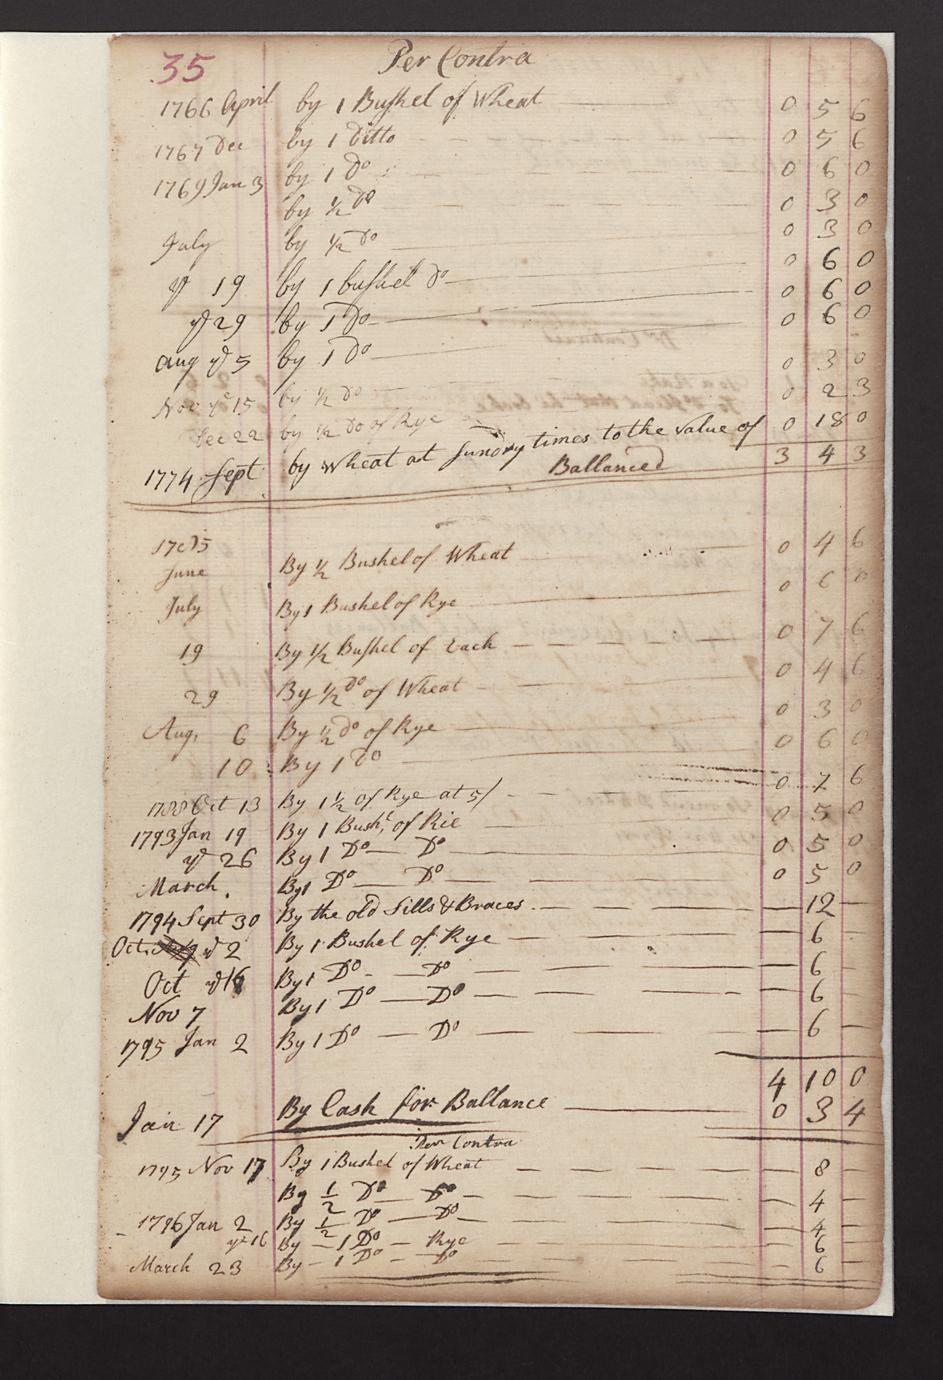 35 Per Contra
1766 April by 1 Bushel of Wheat 0 5 6
1767 Dec by 1 Ditto 0 5 6
1769 Jan 3 by 1 Do 0 6 0
by ½ Do 0 3 0
July by ½ Do 0 3 0
ye 19 by 1 bushel Do 0 6 0
ye 29 by 1 Do 0 6 0
Aug ye 5 by 1 Do 0 6 0
Nov ye 15 by ½ Do 0 3 0
Dec 22 by ½ Do of Rye 0 2 3
1774 Sept by Wheat at Sundry times to the value of 0 18 0
Ballanced 3 4 3
June By ½ Bushel of Wheat 0 4 6
July By 1 Bushel of Rye 0 6 0
19 By ½ Bushel of Each 0 7 6
29 By ½ Do of Wheat 0 4 6
Aug, 6 By ½ Do of Rye 0 3 0
10 By 1 Do 0 6 0
Oct 13 By 1½ of Rye at 5/ 0 7 6
1793 Jan 19 By 1 Bushl, of Rie 0 5 0
ye 26 By 1 Do Do 0 5 0
March By 1 Do Do 0 5 0
1794 Sept 30 By the old Sills & Braces 12
Oct. ye 2 By 1 Bushel of Rye 6
Oct ye 16 By 1 Do Do 6
Nov 7 By 1 Do Do 6
1795 Jan 2 By 1 Do Do 6
4 10 0
Jan 17 By Cash for Ballance 0 3 4
Per Contra
1795 Nov 17 By 1 Bushel of Wheat 8
By ½ Do Do 4
1796 Jan 2 By ½ Do Do 4
ye 16 By 1 Do Rye 6
March 23 By 1 Do Do 6